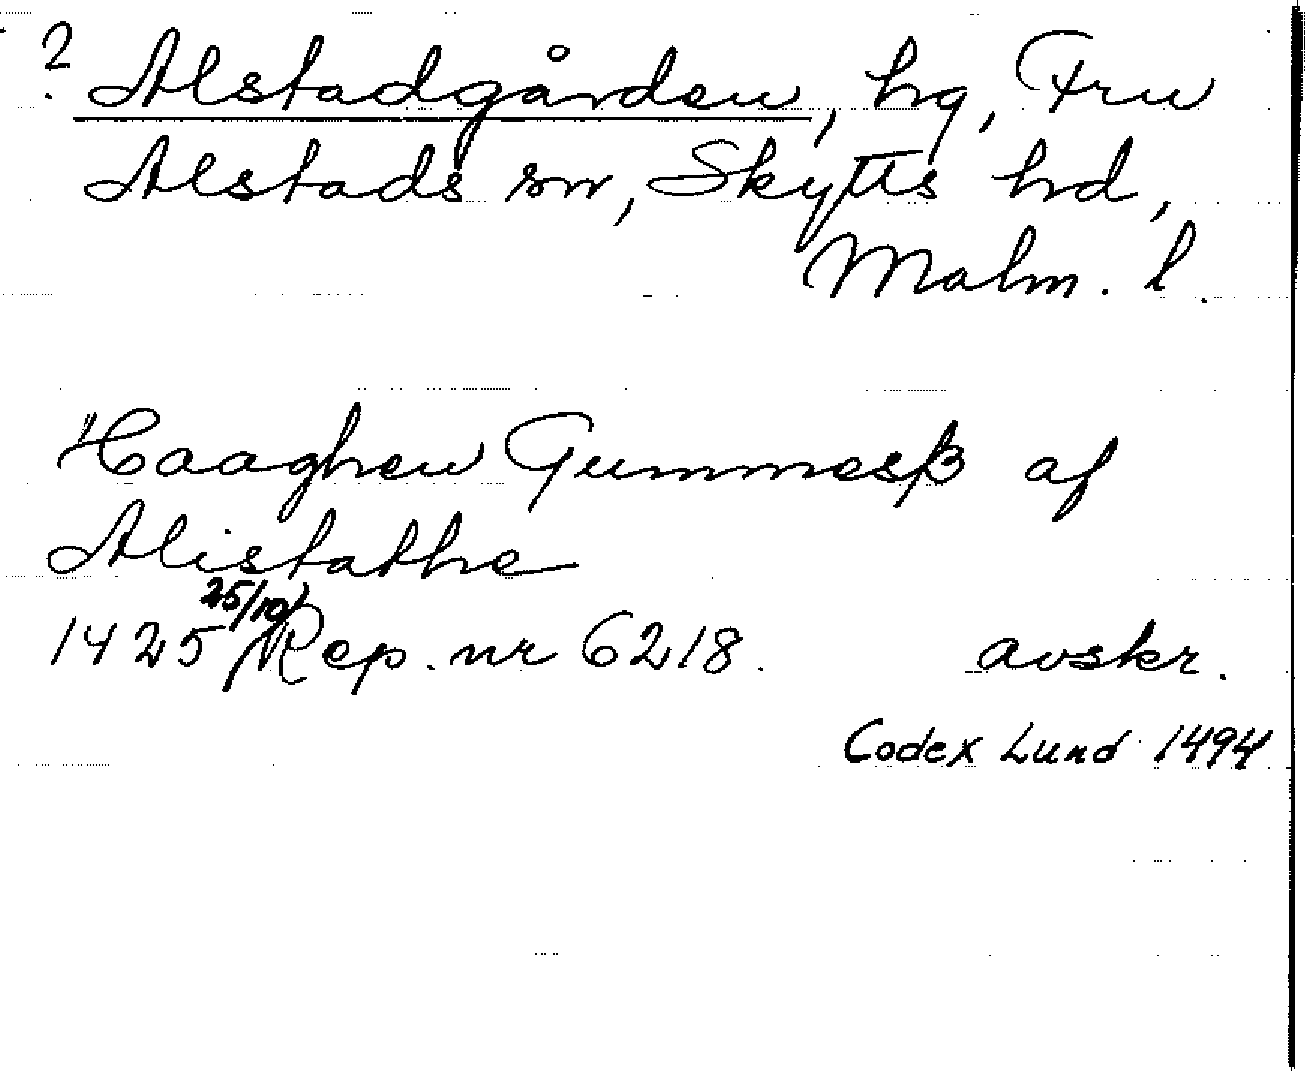 ? Alstadgården, hg, Fru
Alstads sn, Skytts hd,
Malm. l.
Haaghen Gummesß af
Alistathe
1425 25/10 Rep. nr 6218. avskr.
Codex Lund 1494